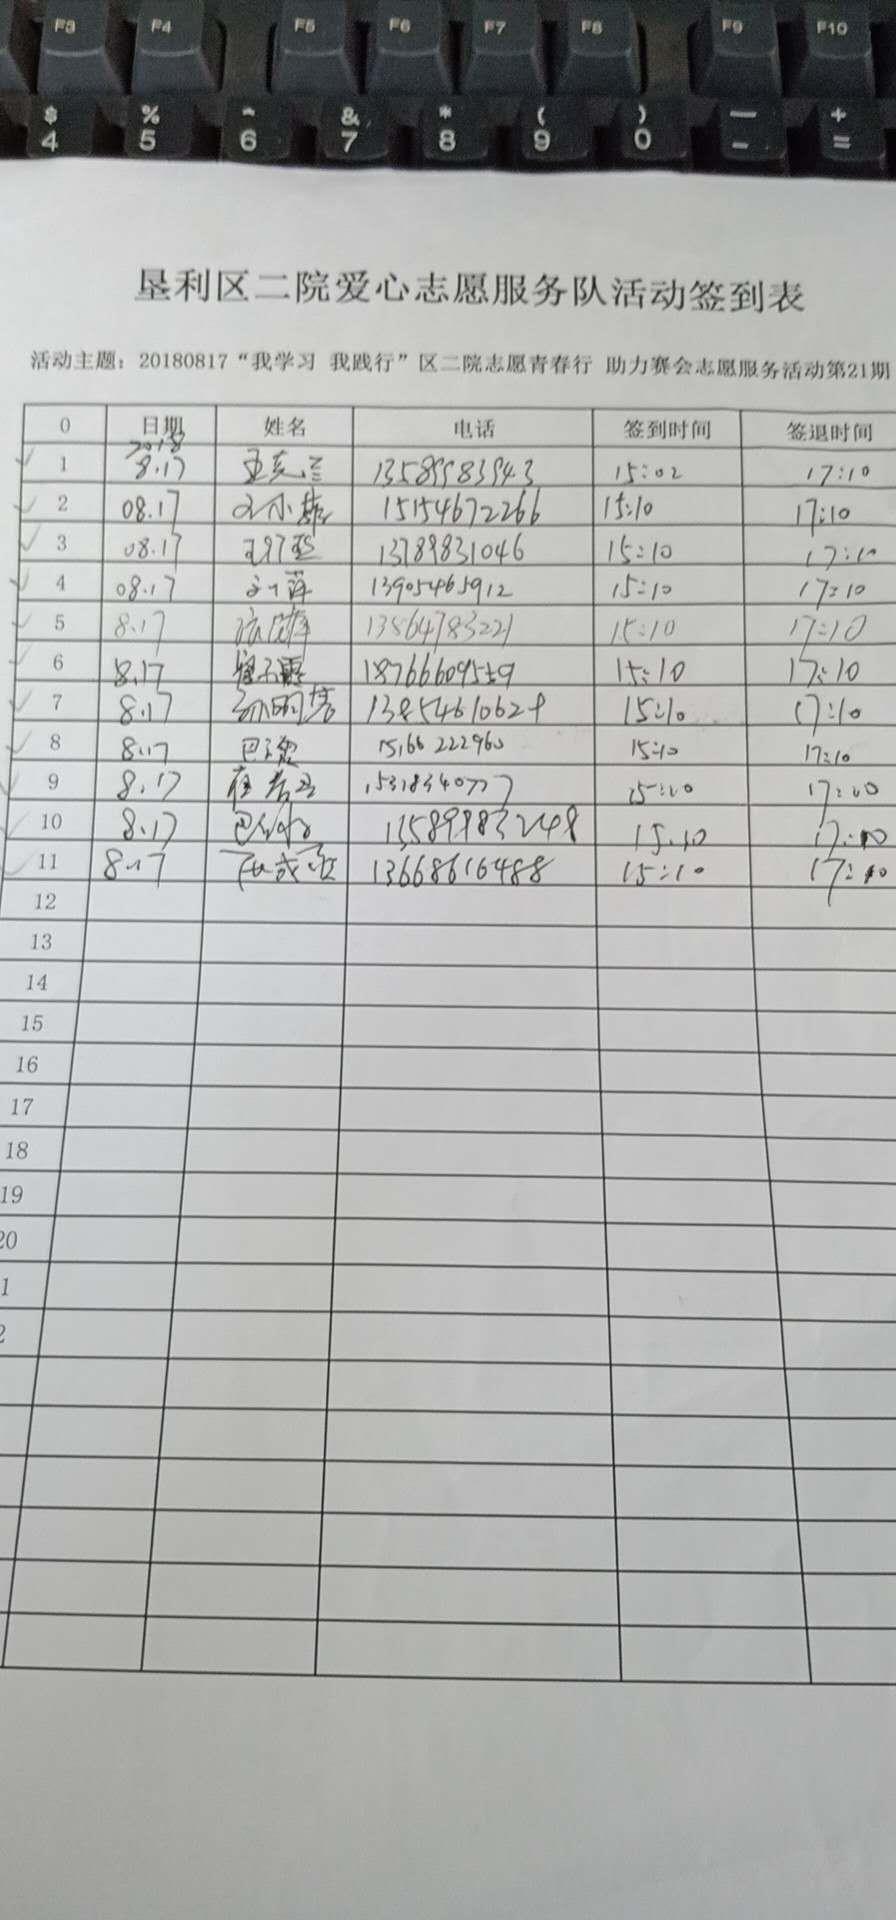 F3 F4 F5 F6 F7 F8 F9 F10
$ % ^ & * ( ) — +
4 5 6 7 8 9 0 - =
垦利区二院爱心志愿服务队活动签到表
活动主题：20180817“我学习 我践行”区二院志愿青春行 助力赛会志愿服务活动第21期
0 日期 姓名 电话 签到时间 签退时间
1 2018 8.17 13589983943 15:02 17:10
2 08.17 15154672266 15:10 17:10
3 08.17 13789831046 15:10 17:10
4 08.17 13905465912 15:10 17:10
5 8.17 13864783221 15:10 17:10
6 8.17 18766609559 15:10 17:10
7 8.17 15:10 17:10
8 8.17 15166222960 15:10 17:10
9 8.17 15318340777
10 8.17 13589983248 15.10 17:10
11 8.17 13668616488 15:10 17:10
12
13
14
15
16
17
18
19
20
1
2